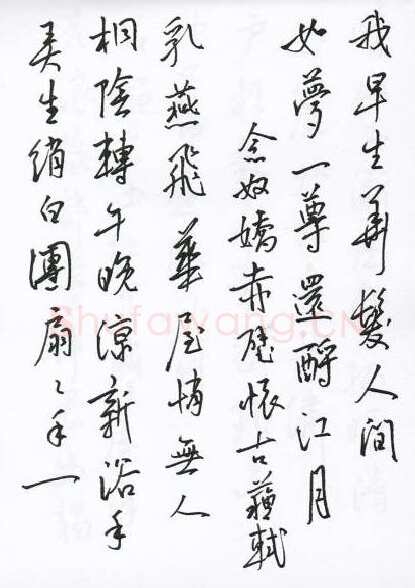 我早生華髮人間
如夢一尊還酹江月
念奴嬌赤壁懷古蘇軾
乳燕飛華屋悄無人
桐陰轉午晚涼新浴手
弄生綃白團扇〻手一
Shufawang.CN